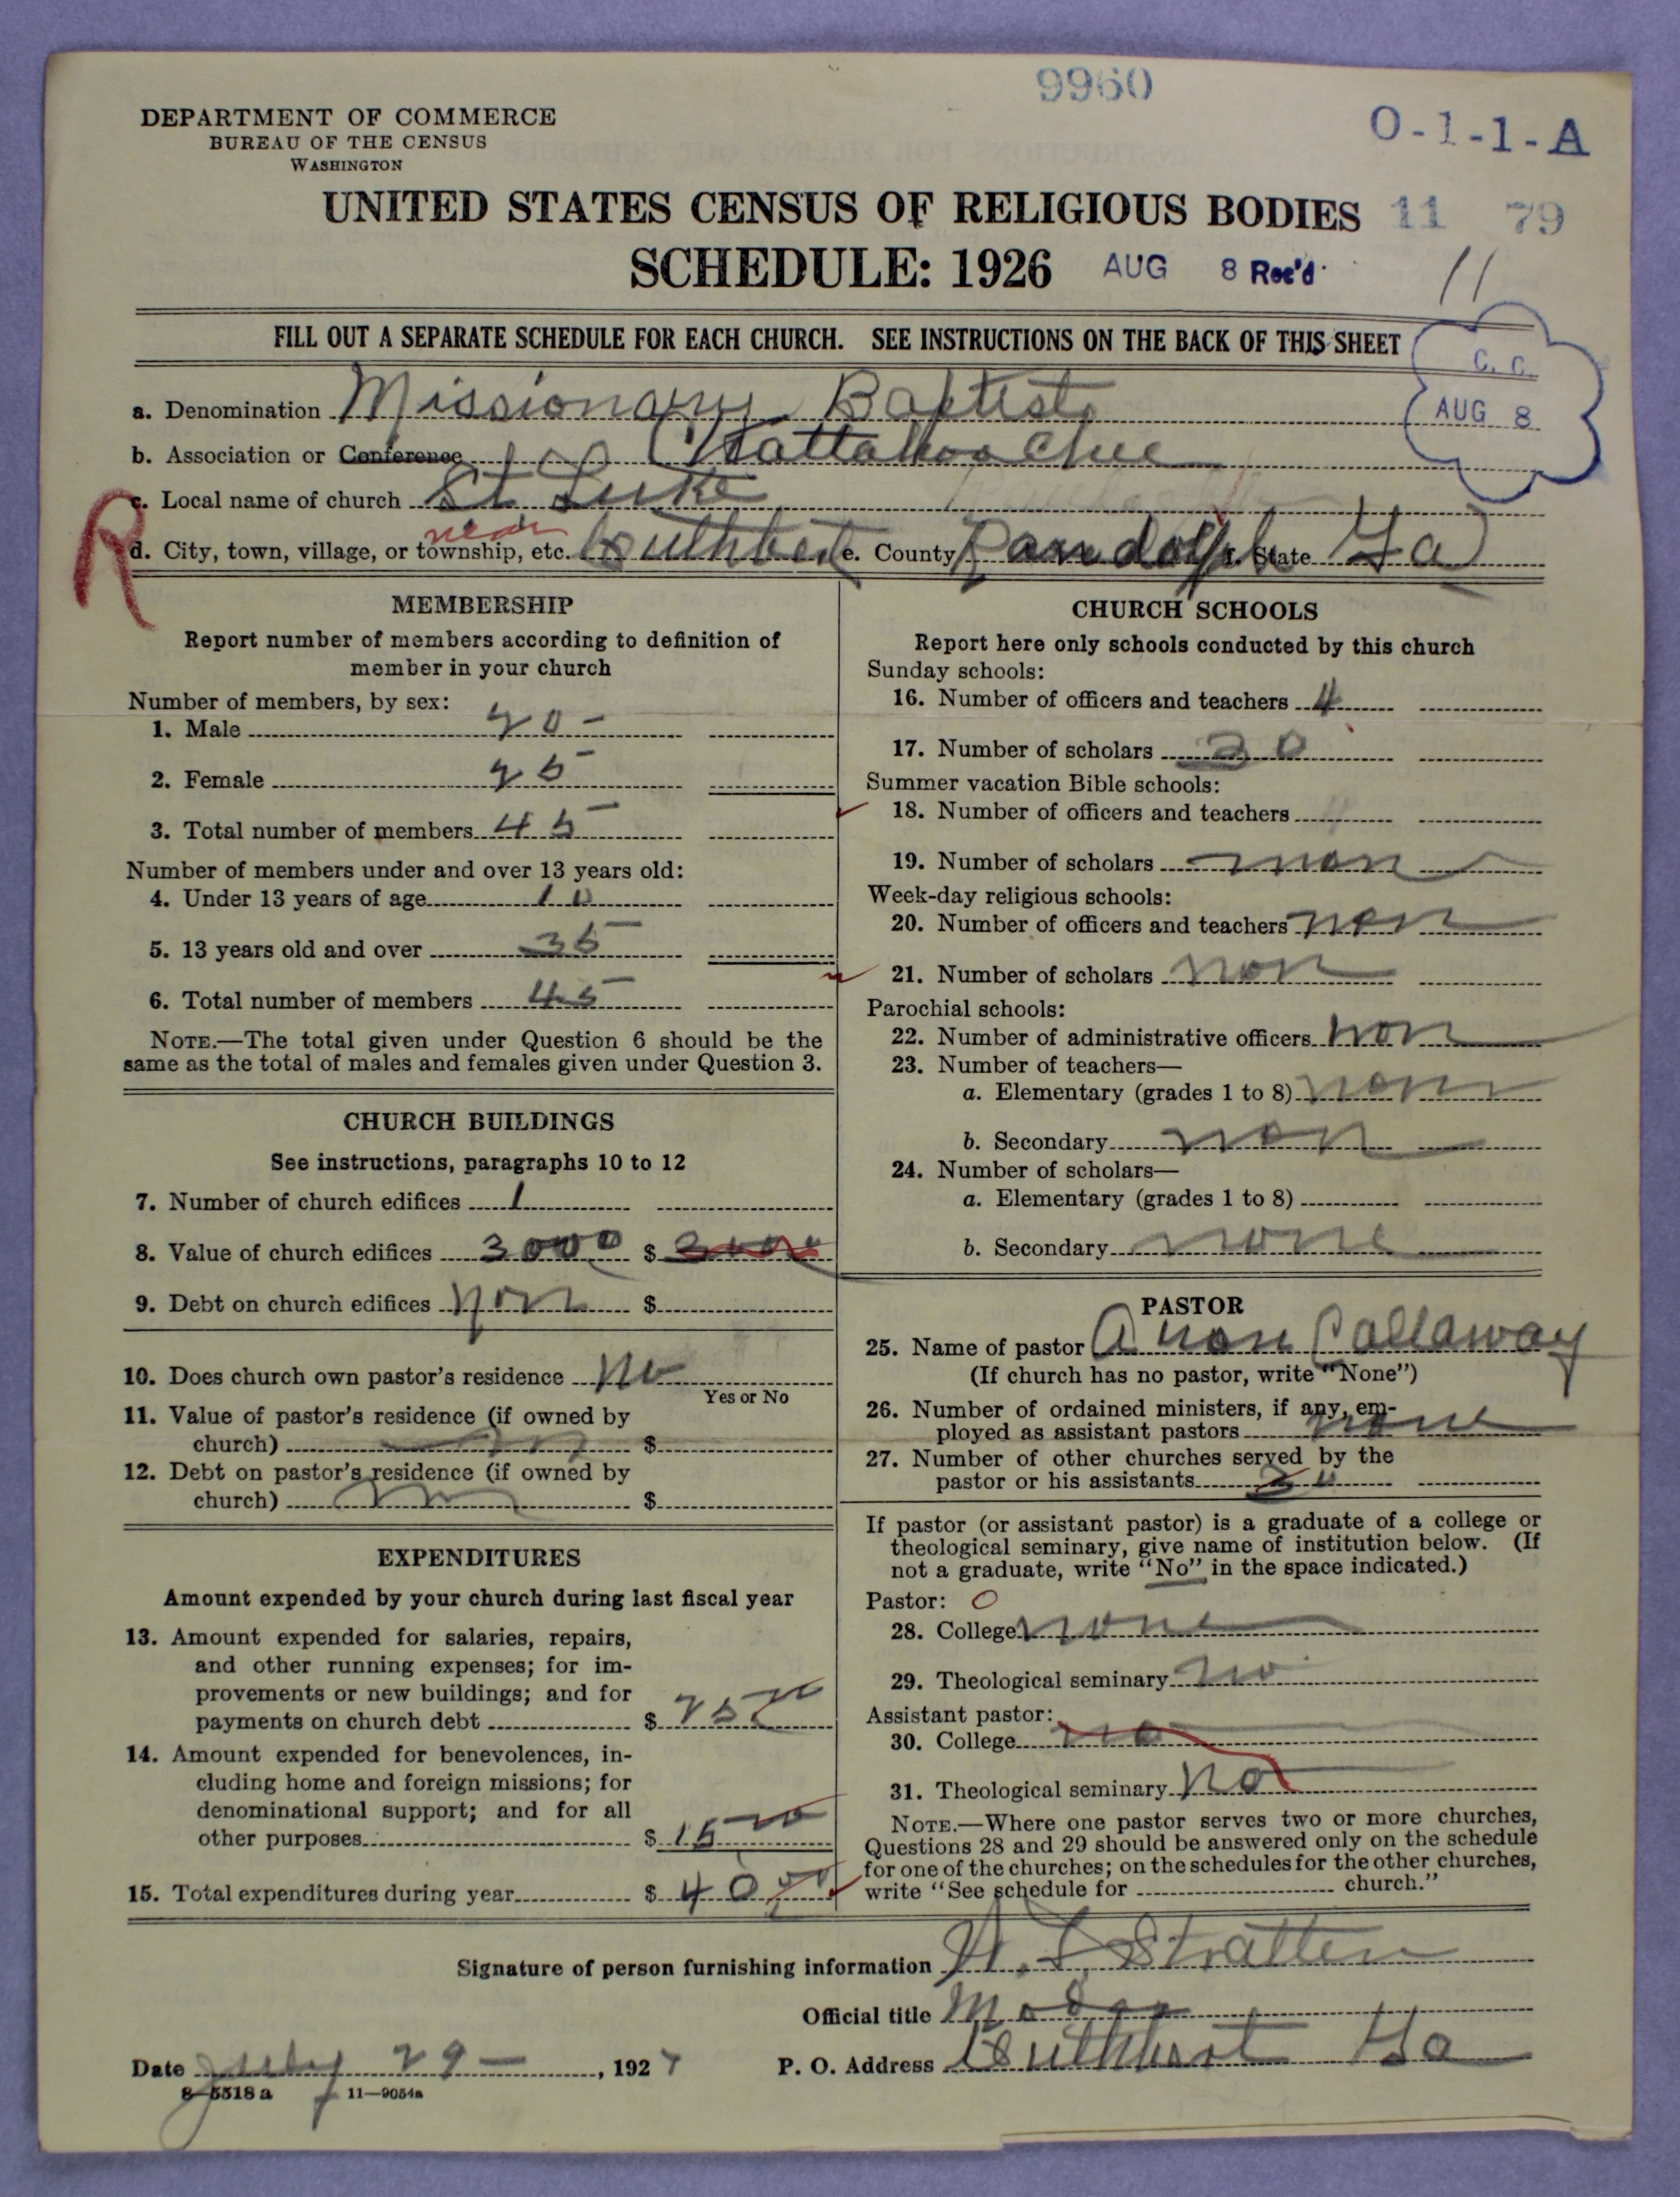 9960
DEPARTMENT OF COMMERCE
BUREAU OF THE CENSUS
WASHINGTON
O-1-1-A
UNITED STATES CENSUS OF RELIGIOUS BODIES 11 79
SCHEDULE: 1926 AUG 8 Rec'd
11
FILL OUT A SEPARATE SCHEDULE FOR EACH CHURCH. SEE INSTRUCTIONS ON THE BACK OF THIS SHEET
C. C.
AUG 8
a. Denomination Missionary Baptist
b. Association or Conference Chattahoochee
c. Local name of church St Luke
R
near
d. City, town, village, or township, etc. Cuthbert e. County Randolph f. State Ga
MEMBERSHIP
Report number of members according to definition of
member in your church
Number of members, by sex:
1. Male 20 -
2. Female 25
3. Total number of members 45
Number of members under and over 13 years old:
4. Under 13 years of age 10
5. 13 years old and over 35
6. Total number of members 45
NOTE.—The total given under Question 6 should be the
same as the total of males and females given under Question 3.
CHURCH BUILDINGS
See instructions, paragraphs 10 to 12
7. Number of church edifices 1
8. Value of church edifices 3000 $ 3000
9. Debt on church edifices non $
10. Does church own pastor's residence no
Yes or No
11. Value of pastor's residence (if owned by
church) $
12. Debt on pastor's residence (if owned by
church) $
EXPENDITURES
Amount expended by your church during last fiscal year
13. Amount expended for salaries, repairs,
and other running expenses; for im-
provements or new buildings; and for
payments on church debt $ 25
14. Amount expended for benevolences, in-
cluding home and foreign missions; for
denominational support; and for all
other purposes $ 15 00
15. Total expenditures during year $ 40 00
CHURCH SCHOOLS
Report here only schools conducted by this church
Sunday schools:
16. Number of officers and teachers 4
17. Number of scholars 30
Summer vacation Bible schools:
18. Number of officers and teachers
19. Number of scholars non
Week-day religious schools:
20. Number of officers and teachers non
21. Number of scholars non
Parochial schools:
22. Number of administrative officers non
23. Number of teachers—
a. Elementary (grades 1 to 8) non
b. Secondary non
24. Number of scholars—
a. Elementary (grades 1 to 8)
b. Secondary none
PASTOR
25. Name of pastor Callaway
(If church has no pastor, write "None")
26. Number of ordained ministers, if any, em-
ployed as assistant pastors none
27. Number of other churches served by the
pastor or his assistants
If pastor (or assistant pastor) is a graduate of a college or
theological seminary, give name of institution below. (If
not a graduate, write "No" in the space indicated.)
Pastor: O
28. College none
29. Theological seminary no
Assistant pastor:
30. College no
31. Theological seminary no
NOTE.—Where one pastor serves two or more churches,
Questions 28 and 29 should be answered only on the schedule
for one of the churches; on the schedules for the other churches,
write "See schedule for church."
Signature of person furnishing information Stratten
Official title
Date July 29 - , 1927 P. O. Address Cuthbert Ga
8-5518 a 11—9054a